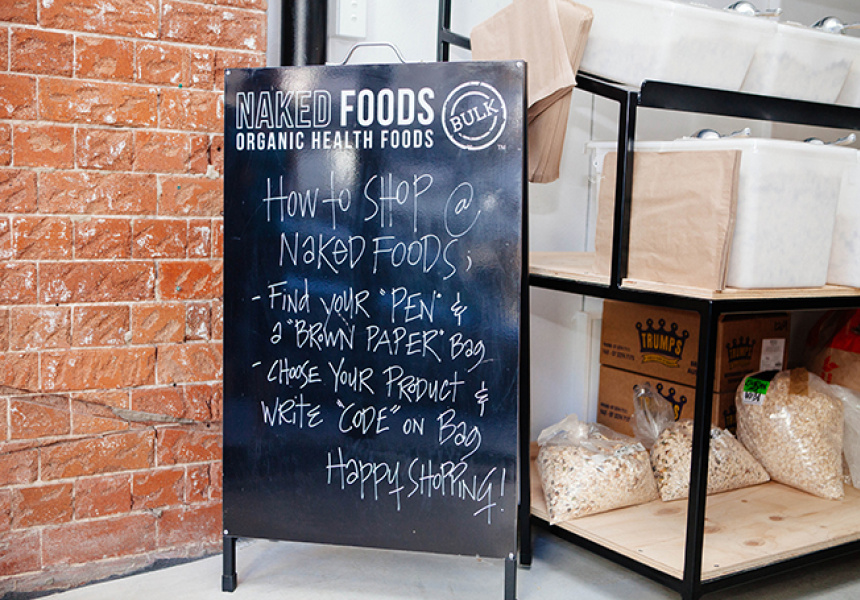 NAKED FOODS
ORGANIC HEALTH FOODS
BULK
TM
How to SHOP @
NAKED FOODS;
- FIND YOUR "PEN" &
a "BROWN PAPER" Bag
- CHOOSE YOUR PRODUCT &
WRITE "CODE" ON Bag
Happy SHOPPING!
TRUMPS